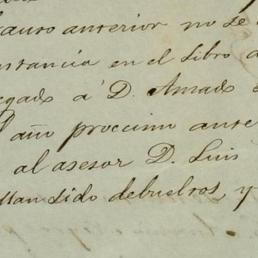 auro anterior no se
stancia en el libro d
egado á D. Amado
l año procsimo ante
al asesor D. Luis
llan sido debueltos, y